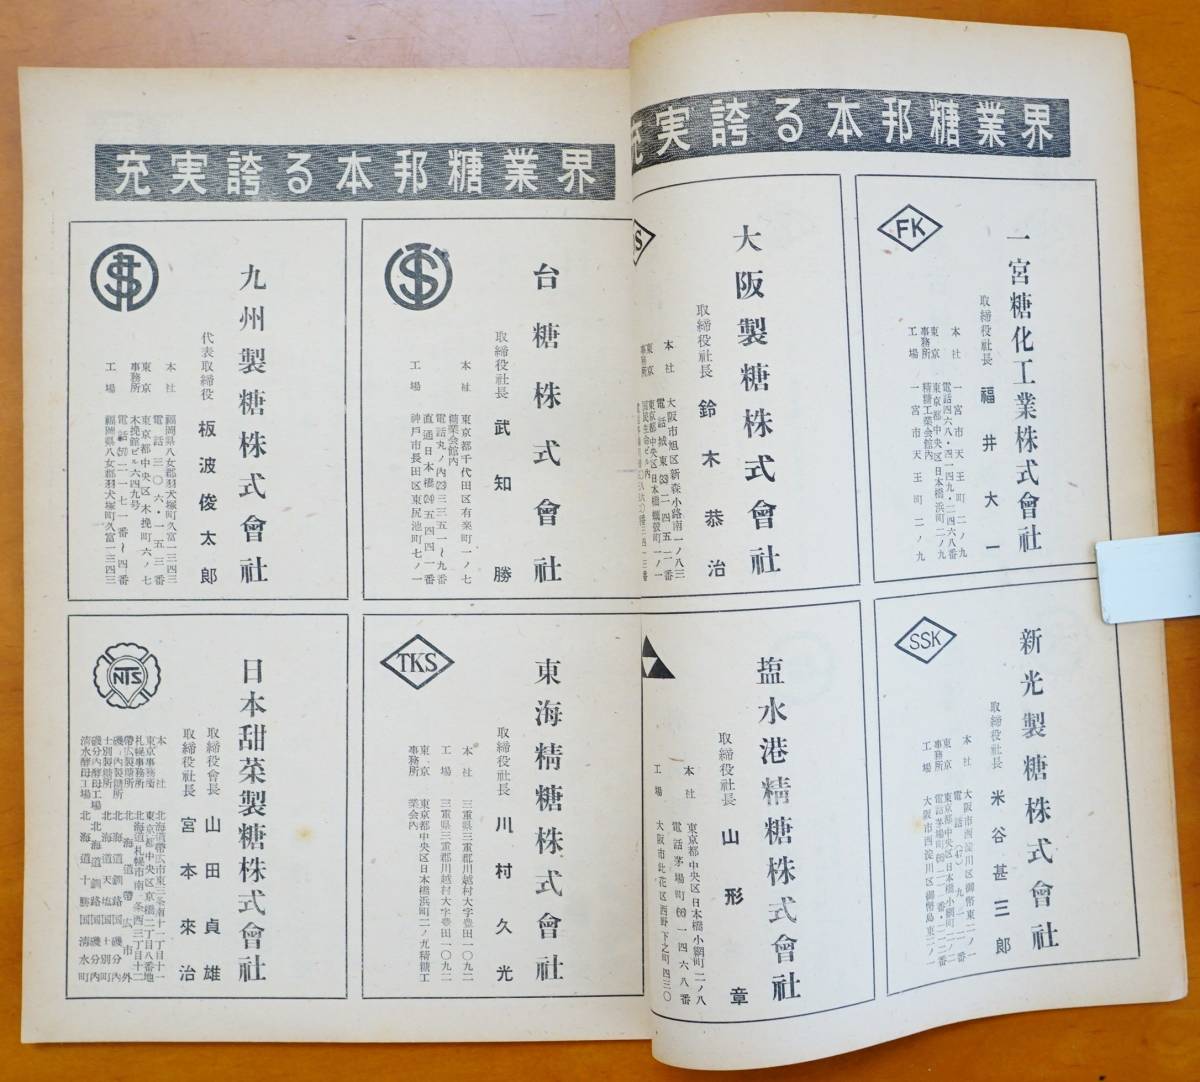 充実誇る本邦糖業界
FK
一宮糖化工業株式會社
取締役社長 福井大一
本社 一宮市天王町二ノ九
電話四六八・四一四九・二四六八番
東京事務所 東京都中央区日本橋浜町二ノ九
精糖工業会館内
工場 一宮市天王町二ノ九
大阪製糖株式會社
取締役社長 鈴木恭治
本社 大阪市旭区新森小路南一ノ八三
電話城東(33)二四五一番
東京事務所 東京都中央区日本橋蠣殻町一ノ一
SSK
新光製糖株式會社
取締役社長 米谷甚三郎
本社 大阪市西淀川区御幣東二ノ一
東京事務所 東京都中央区日本橋小網町二ノ二
工場 大阪市西淀川区御幣島東二ノ一
塩水港精糖株式會社
取締役社長 山形章
本社 東京都中央区日本橋小網町二ノ八
電話茅場町(66)一四六八番
工場 大阪市此花区西野下之町四三〇
充実誇る本邦糖業界
台糖株式會社
取締役社長 武知勝
本社 東京都千代田区有楽町一ノ七
糖業会館内
電話丸ノ内(23)三三五一〜九番
直通日本橋(24)五四四一番
工場 神戸市長田区東尻池町七ノ一
九州製糖株式會社
代表取締役 板波俊太郎
本社 福岡県八女郡羽犬塚町久富一三四三
電話三〇六・一五三番
東京事務所 東京都中央区木挽町六ノ七
木挽館ビル六四九号
電話(57)二一七一番〜四番
工場 福岡県八女郡羽犬塚町久富一三四三
TKS
東海精糖株式會社
取締役社長 川村久光
本社 三重県三重郡川越村大字豊田一〇九二
工場 三重県三重郡川越村大字豊田一〇九二
東京事務所 東京都中央区日本橋浜町二ノ九精糖工業会内
NTS
日本甜菜製糖株式會社
取締役會長 山田貞雄
取締役社長 宮本來治
本社 北海道帶広市東三条南十一丁目十一
東京事務所 東京都中央区京橋二丁目八番地
札幌事務所 北海道札幌市南一条西三丁目十二
帶広製糖所 北海道帶広市外
磯分内製糖所 北海道釧路国磯分内
士別製糖所 北海道天塩国士別町
磯分内酵母工場 北海道釧路国磯分内
清水酵母工場 北海道十勝国清水町